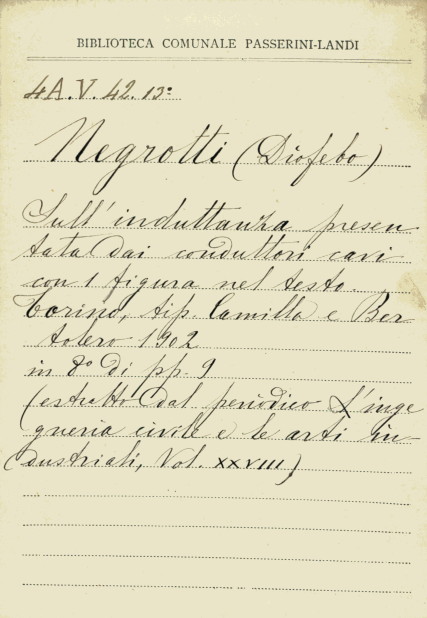 BIBLIOTECA COMUNALE PASSERINI-LANDI
4A.V.42.13º
Negrotti (Diofebo)
Sull'induttanza presen
tata dai conduttori cavi
con 1 figura nel testo.
Torino, tip. Camilla e Ber
tolero 1902
in 8º di pp. 9
(estratto dal periodico L'inge
gneria civile e le arti in-
dustriali, Vol. XXVIII)